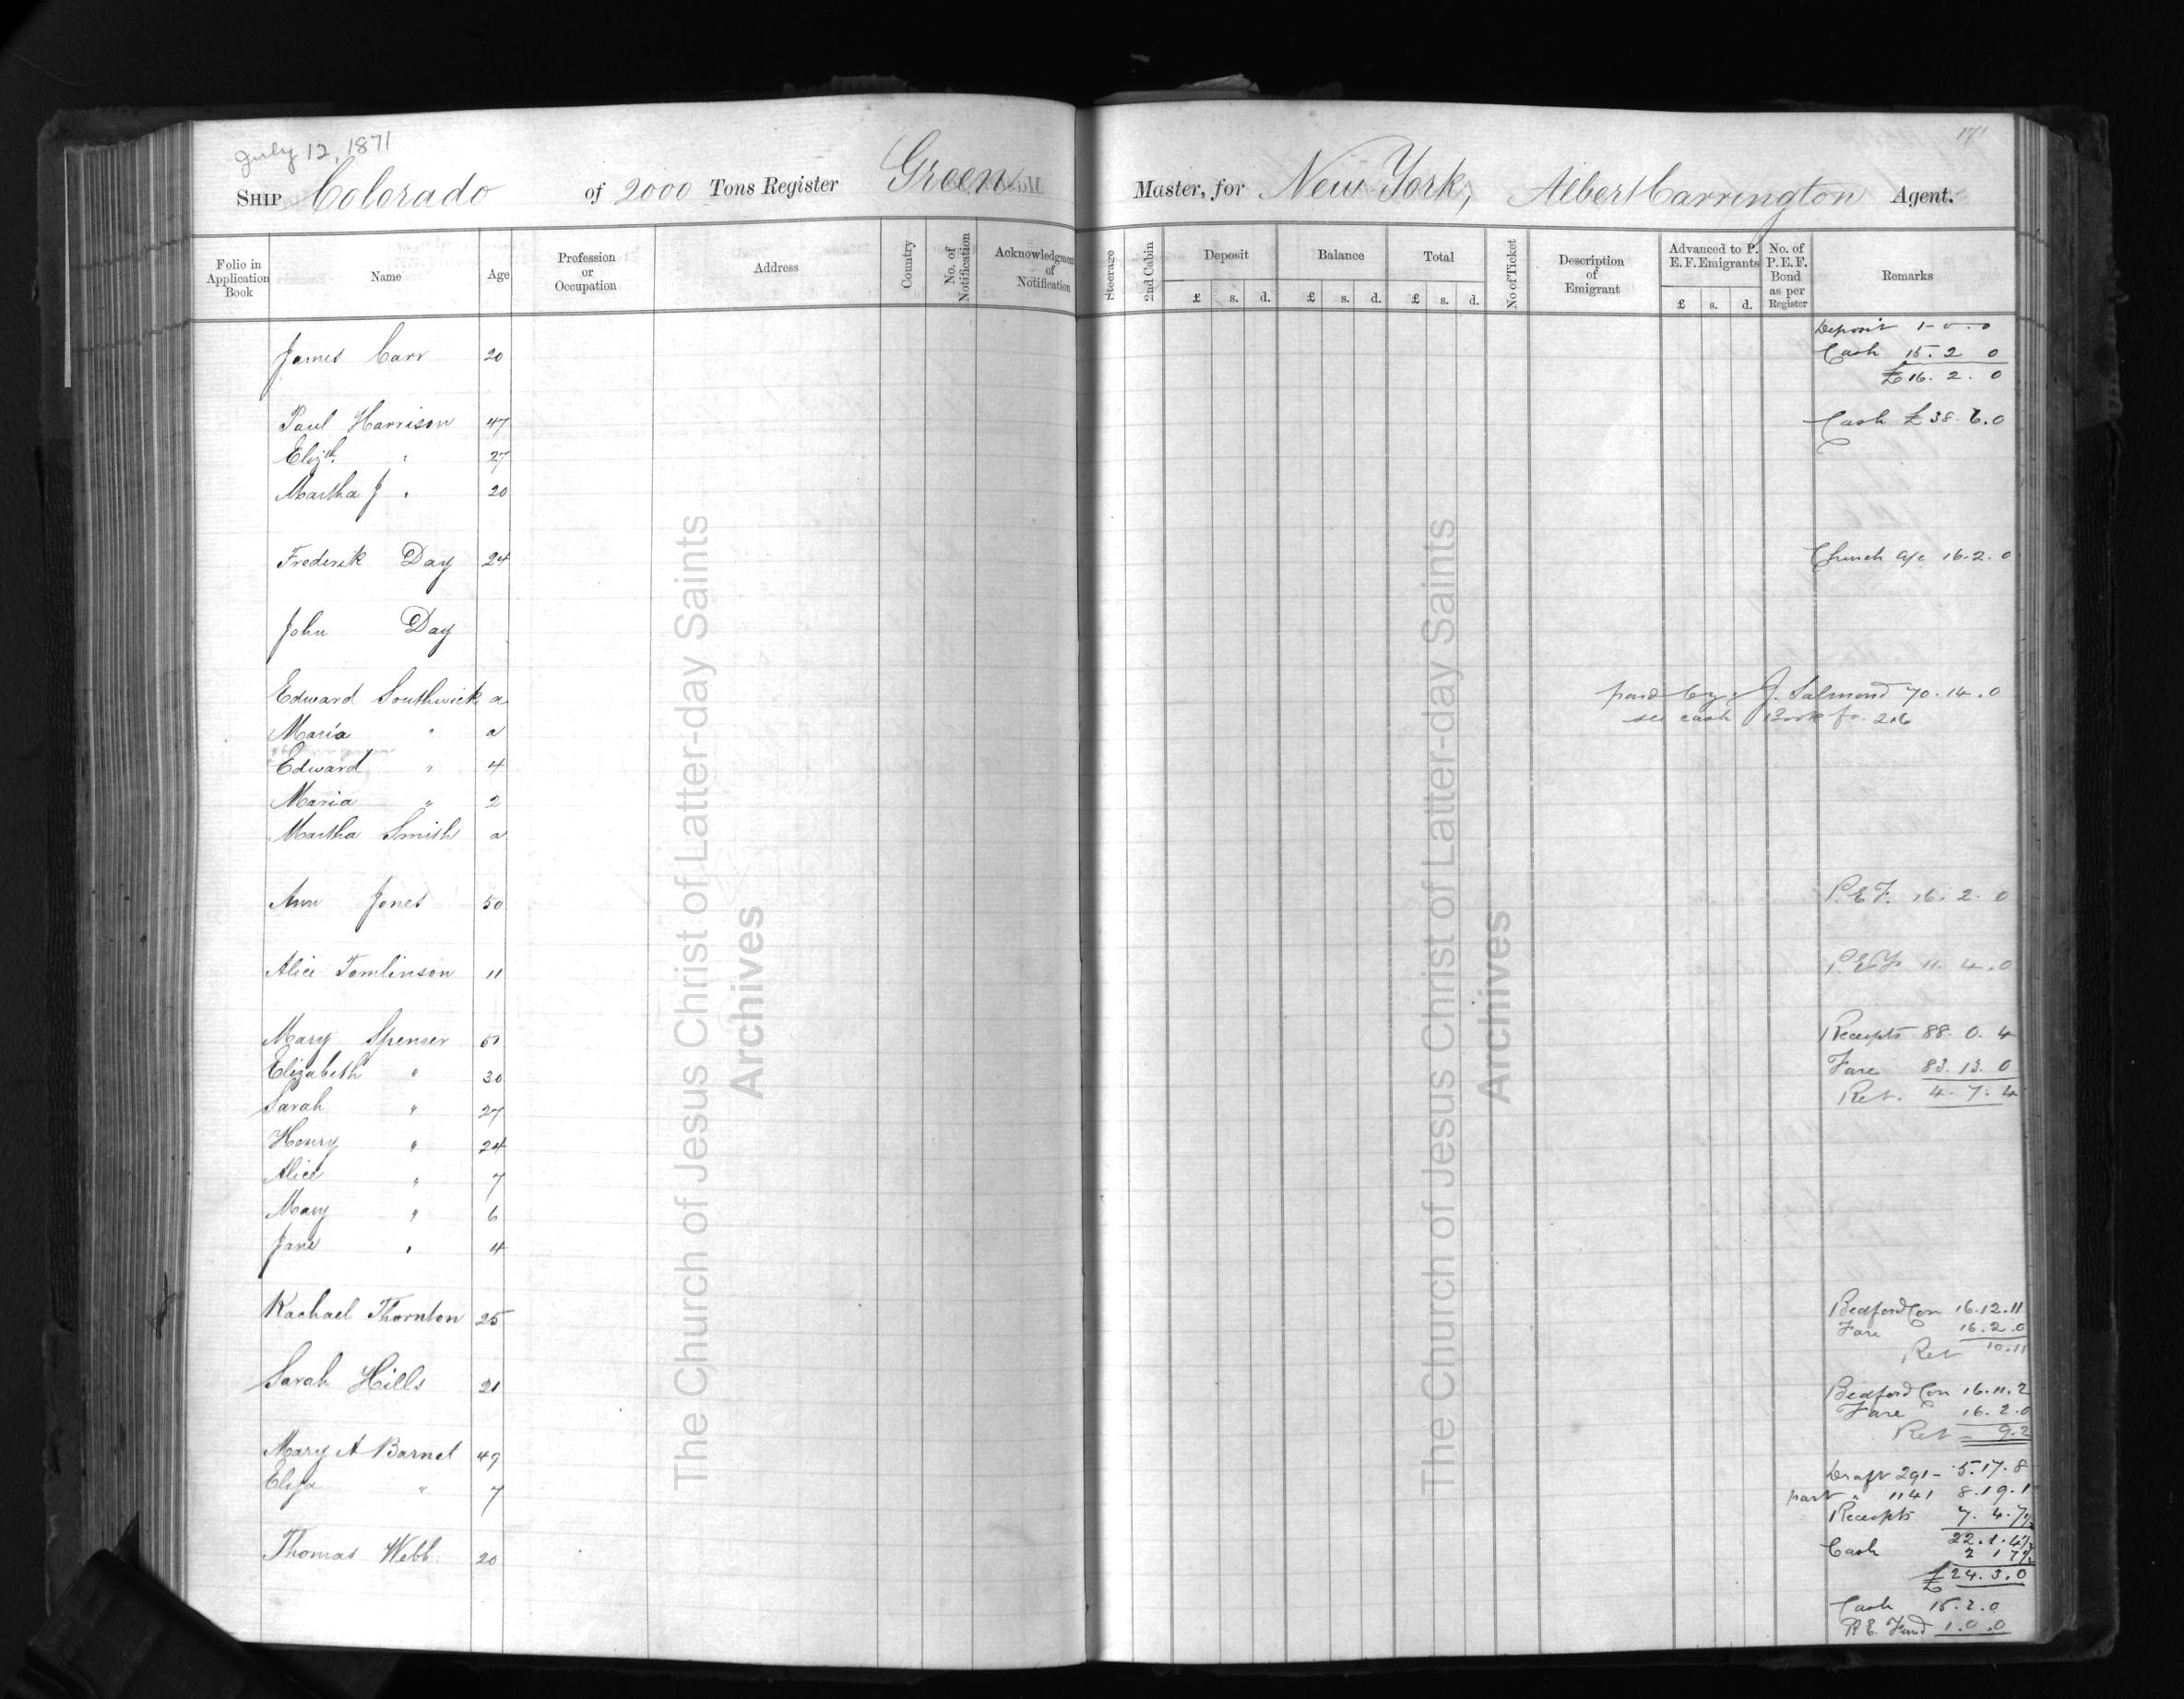 July 12, 1871
171
SHIP Colorado of 2000 Tons Register Green Master, for New York, Albert Carrington Agent.
Folio in Application Book Name Age Profession or Occupation Address Country No. of Notification Acknowledgment of Notification Steerage 2nd Cabin Deposit Balance Total No of Ticket Description of Emigrant Advanced to P. E. F. Emigrants No. of P. E. F. Bond as per Register Remarks
£ s. d. £ s. d. £ s. d. £ s. d.
Deposit 1-0-0
James Carr 20 Cash 15. 2 0
£16. 2. 0
Paul Harrison 47 Cash £38. 6. 0
Elizth. " 27
Martha J " 20
Frederik Day 24 Church a/c 16. 2. 0
John Day
Edward Southwick a paid by J. Salmond 70. 14. 0
see cash Book fo. 216
Maria " a
Edward " 4
Maria " 2
Martha Smith a
Ann Jones 50 P.E.F. 16. 2. 0
Alice Tomlinson 11 P.E.F 11. 4. 0
Mary Spencer Receipts 88. 0. 4
Elizabeth " 30 Fare 83. 13. 0
Ret. 4. 7. 4
Sarah " 27
Henry " 24
Alice " 7
Mary " 6
Jane " 4
Rachael Thornton 25 Bedford Con 16. 12. 11
Fare 16. 2. 0
Ret 10. 11
Sarah Hills 21 Bedford Con 16. 11. 2
Fare 16. 2. 0
Ret 9. 2
Mary A Barnet 49 Draft 291 - 5. 17. 8
Eliza " 7 part " 1141 8. 19. 1
Receipts 7. 4. 7½
22. 1. 4½
Thomas Webb 20 Cash 2 1 7½
£24. 3. 0
Cash 15. 2. 0
P.E. Fund 1. 0. 0
The Church of Jesus Christ of Latter-day Saints
Archives
The Church of Jesus Christ of Latter-day Saints
Archives